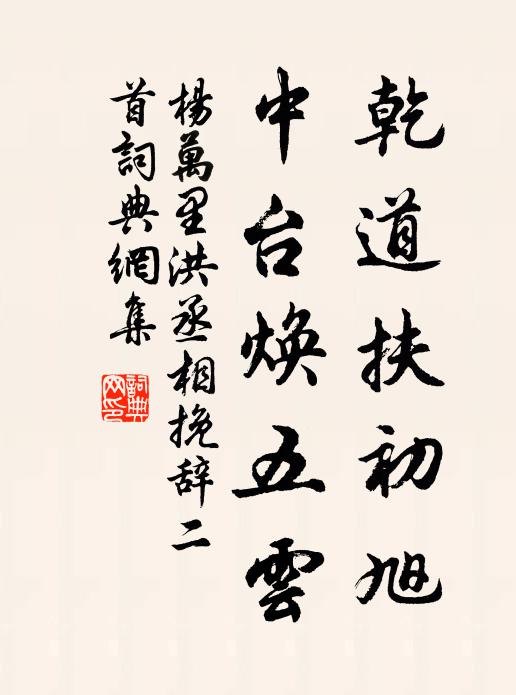 乾道扶初旭
中台焕五雲
楊萬里洪丞相挽辞二
首詞典網集
詞典網印